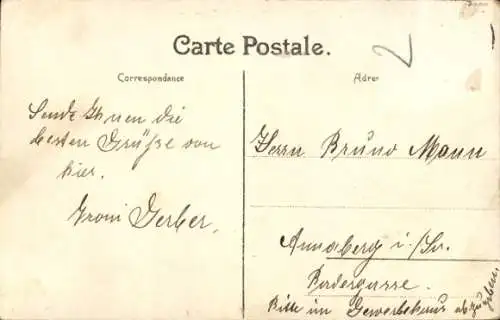 Carte Postale.
Correspondance
Adres
Sende Ihnen die
besten Grüße von
hier.
Vroni Gerber.
Herrn Bruno Mann
Annaberg i/Sa.
Badergasse.
Bitte im Gewerbehaus abzugeben.